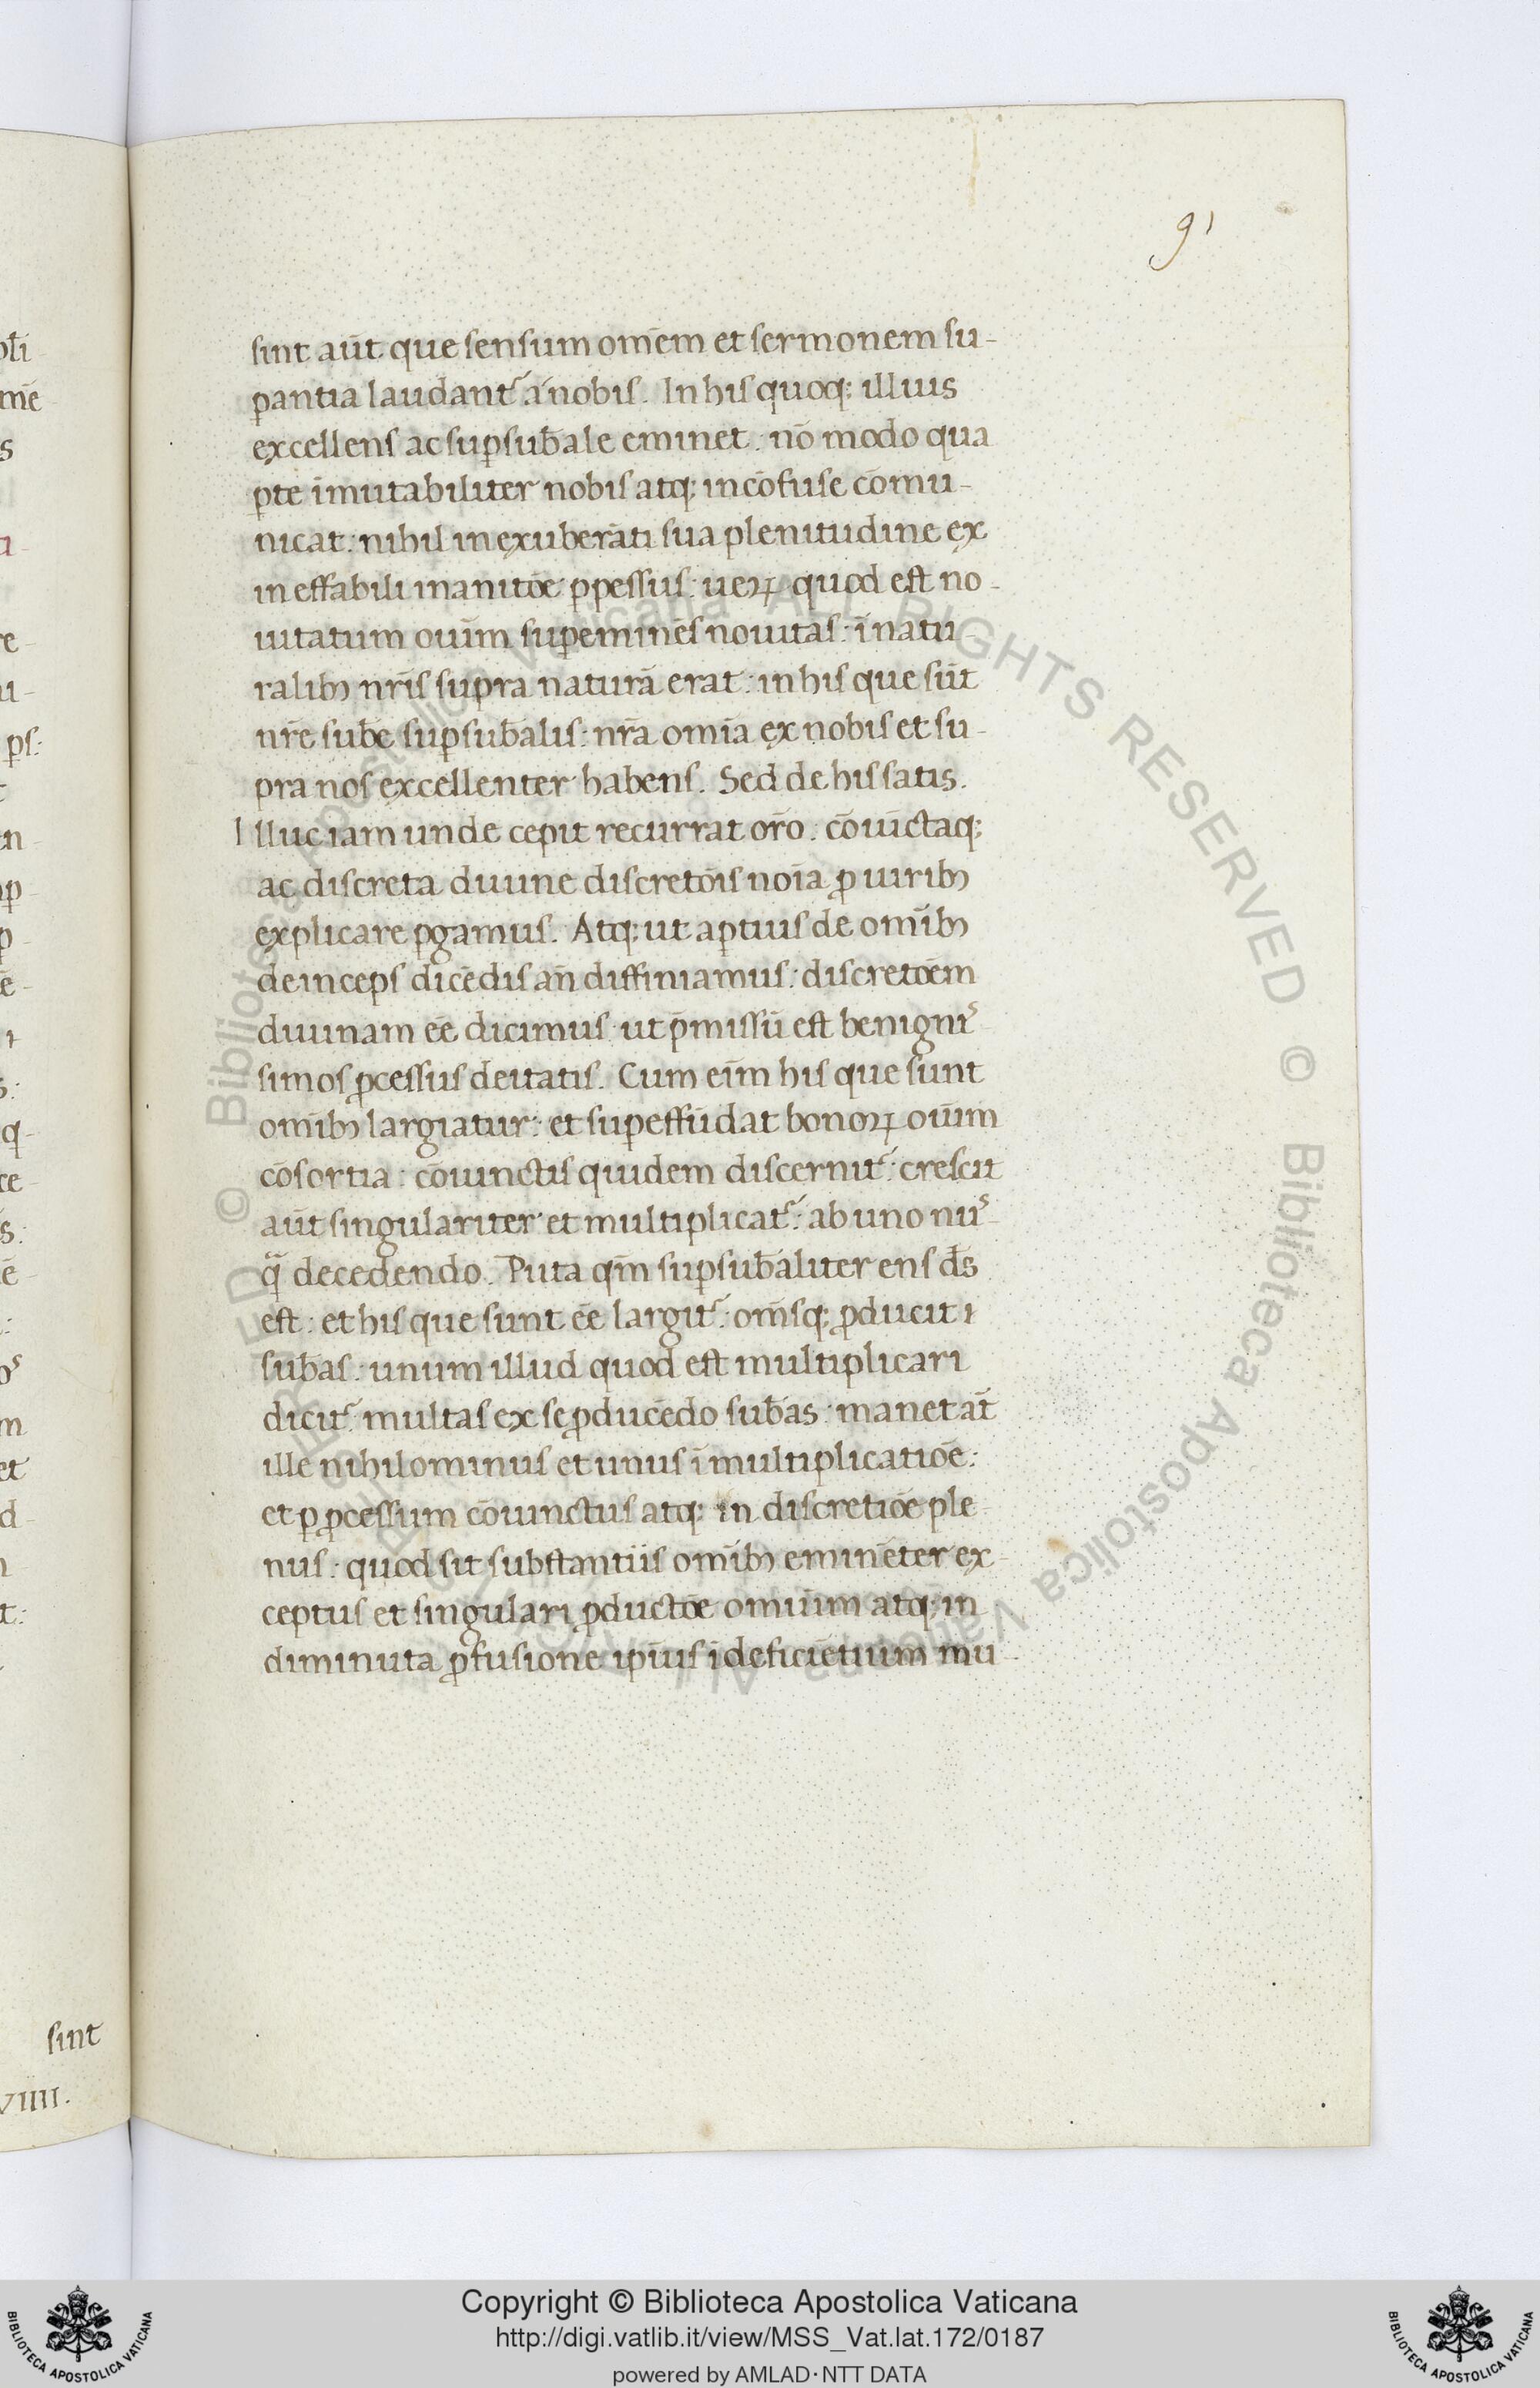 91
sint aūt que sensum om̄em et sermonem su-
ꝑantia laudantˢ a nobis. In his quoq; illius
excellens ac suꝑsub̄ale eminet: nō modo qua
ꝑte īmutabiliter nobis atq; incōfuse cōmu-
nicat: nihil in exuberāti sua plenitudine ex
ineffabili inanitōe ꝑpessus: ueꝝ quod est no-
uitatum ouīm suꝑeminēs nouitas: ī natu-
ralibꝫ nr̄is supra naturā erat: in his que sūt
nr̄e sub̄e suꝑsub̄alis: nr̄a omīa ex nobis et su-
pra nos excellenter habens. Sed de his satis.
Illuc iam unde cepit recurrat or̄o: cōiūctaq;
ac discreta diuine discretōis noīa ꝓ uiribꝫ
explicare ꝑgamus. Atq; ut aptius de omībꝫ
deinceps dicēdis an̄ diffiniamus: discretōem
diuinam eē dicimus ut p̄missū est benignıˢ-
simos ꝓcessus deitatis. Cum eīm his que sunt
omībꝫ largiatur: et suꝑeffūdat bonoꝝ ouīm
cōsortia: cōiunctis quidem discernitˢ: crescit
aūt singulariter et multiplicatˢ: ab uno nuˢ-
q̄ decedendo. Puta qm̄ suꝑsub̄aliter ens ds̄
est: et his que sunt eē largitˢ: om̄sq; ꝓducit i
sub̄as: unum illud quod est multiplicari
dicitˢ multas ex se ꝓducēdo sub̄as: manet at̄
ille nihilominus et unus ī multiplicatiōe:
et ꝑ ꝓcessum cōiunctus atq; in discretiōe ple-
nus: quod sit substantiis omībꝫ eminēter ex-
ceptus et singulari ꝓductōe omnium atq; in
diminuta ꝓfusione ipīus īdeficiētium mu-
sint
VIIII.
© Biblioteca Apostolica Vaticana ALL RIGHTS RESERVED
© Biblioteca Apostolica Vaticana
Copyright © Biblioteca Apostolica Vaticana
http://digi.vatlib.it/view/MSS_Vat.lat.172/0187
powered by AMLAD·NTT DATA
BIBLIOTECA APOSTOLICA VATICANA
BIBLIOTECA APOSTOLICA VATICANA